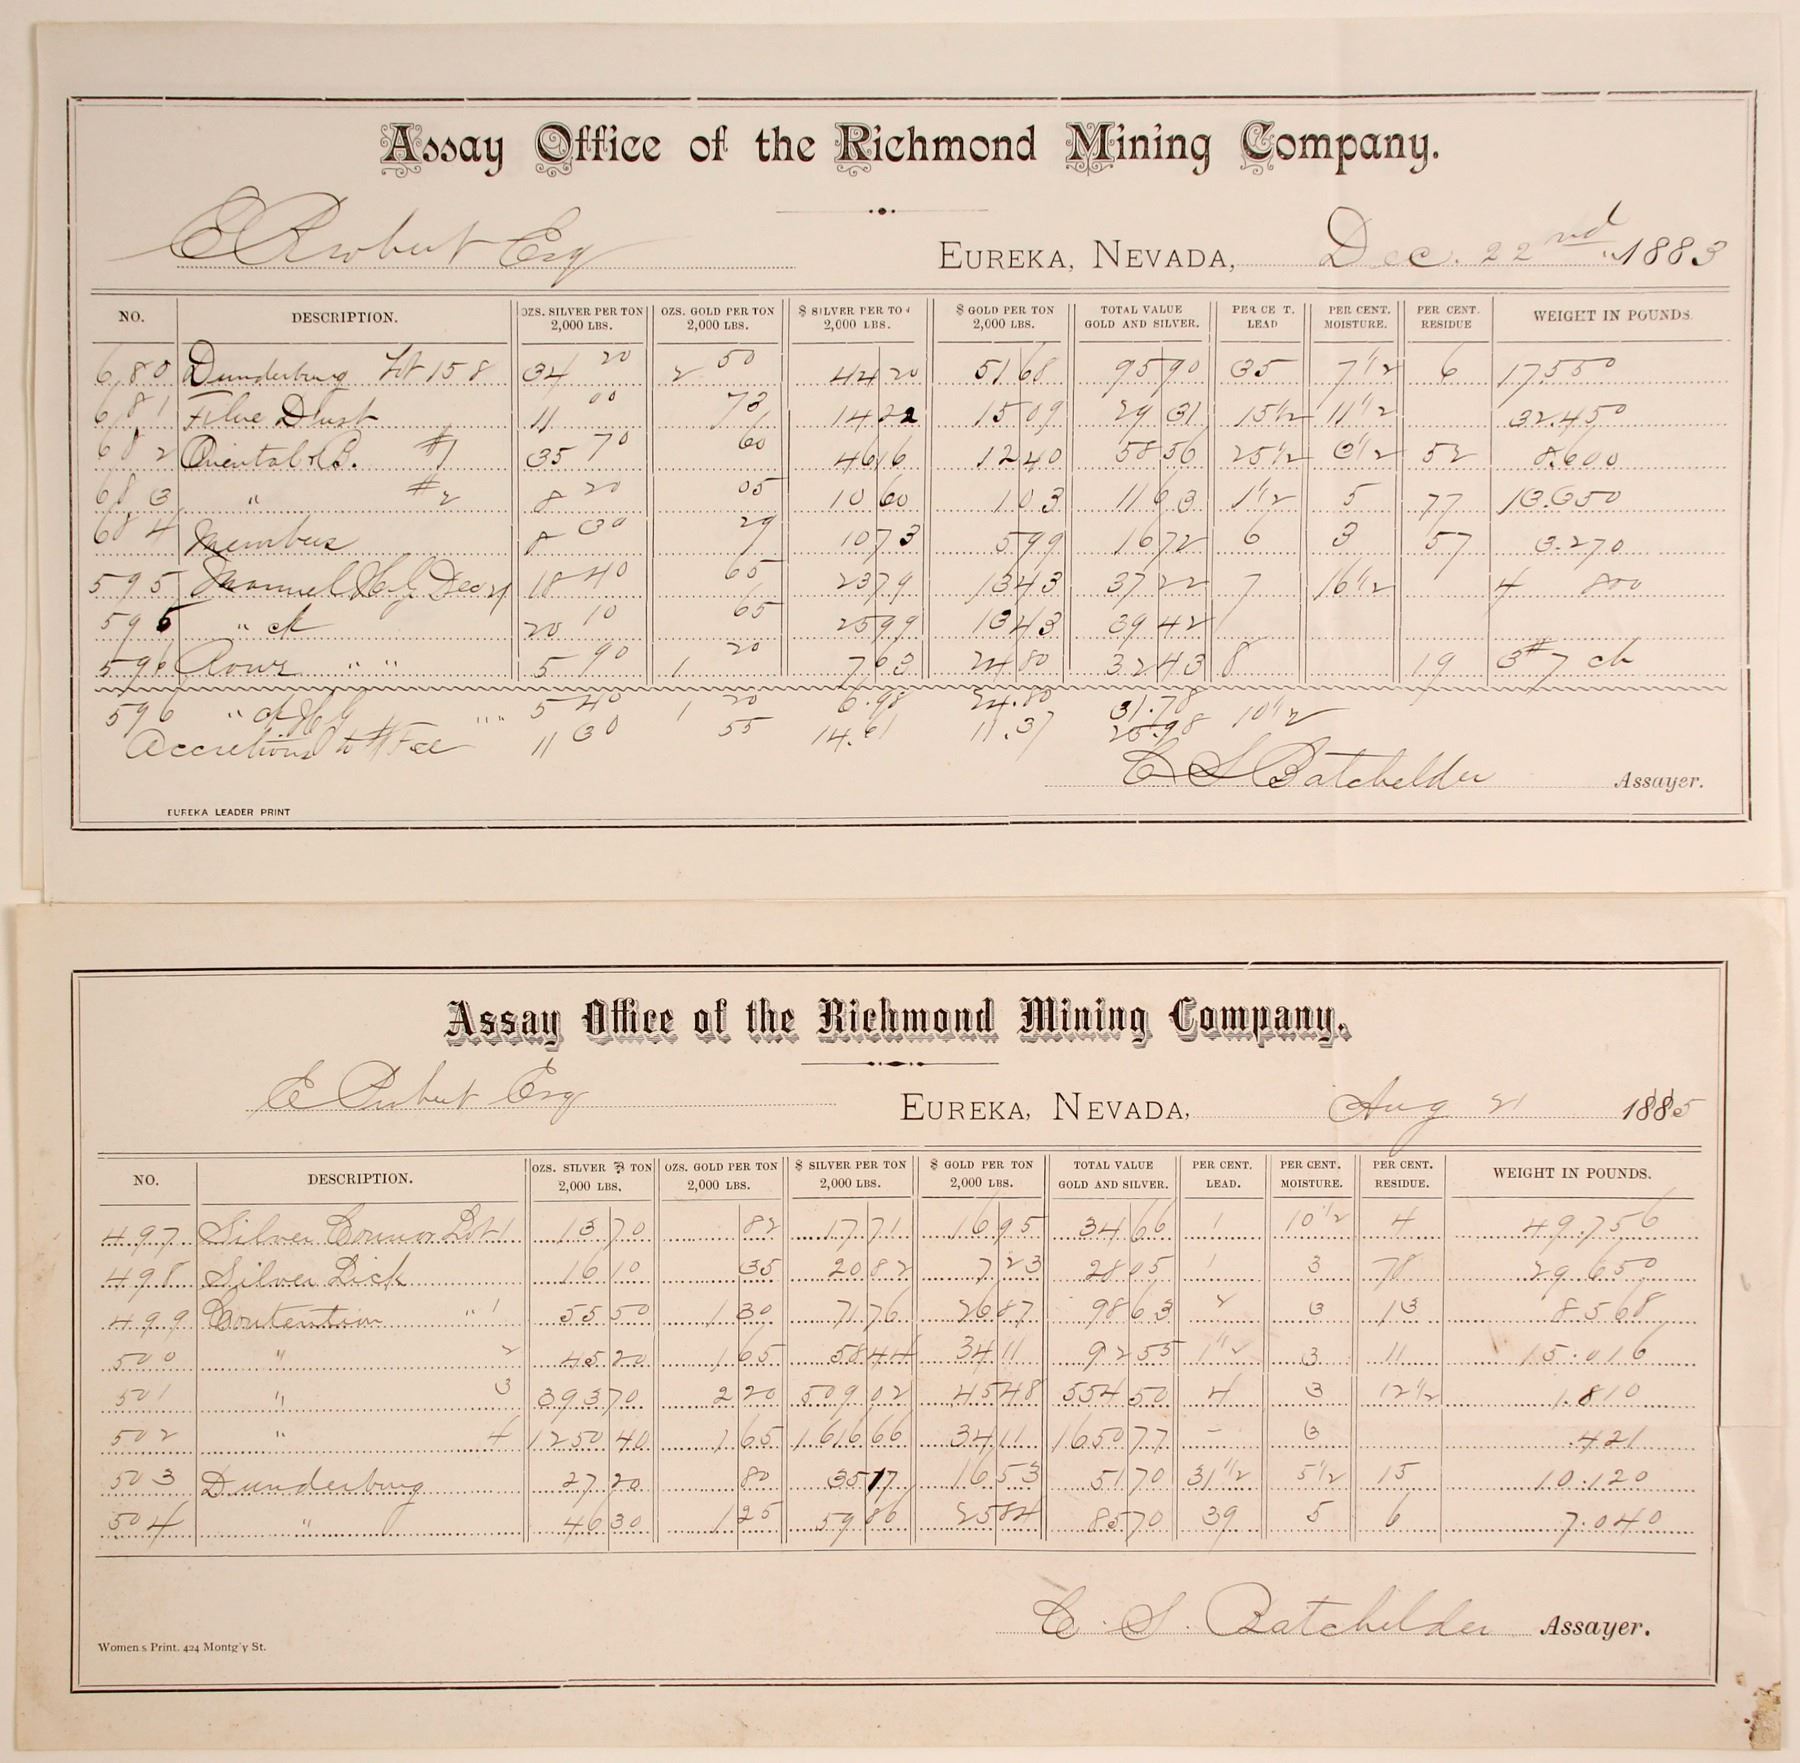 Assay Office of the Richmond Mining Company.
E Probert Esq
EUREKA, NEVADA, Dec. 22nd 1883
NO. DESCRIPTION. OZS. SILVER PER TON 2,000 LBS. OZS. GOLD PER TON 2,000 LBS. $ SILVER PER TON 2,000 LBS. $ GOLD PER TON 2,000 LBS. TOTAL VALUE GOLD AND SILVER. PER CENT. LEAD PER CENT. MOISTURE. PER CENT. RESIDUE WEIGHT IN POUNDS.
680 Dunderburg Lot 158 34 20 2 50 44 20 51 68 95 90 35 7 1/2 6 17.550
681 Flue Dust 11 00 73 14 22 15 09 29 31 15 1/2 11 1/2 32.450
682 Oriental & B. #1 35 70 60 46 16 12 40 58 56 25 1/2 3 1/2 52 8.600
683 " #2 8 20 05 10 60 1 03 11 63 1 1/2 5 77 13.350
684 8 30 29 10 73 5 99 16 72 6 3 57 3.270
595 H.G. Dec 18 40 65 23 79 13 43 37 22 7 16 1/2 4 800
596 " ck 20 10 65 25 99 13 43 39 42
596 " " 5 90 1 20 7 63 24 80 32 43 8 19 3# 7 ck
596 " ck H G " " 5 40 1 20 6.98 24.80 31.78 10 1/2
Accretions to # Fce 11 30 55 14.61 11.37 25.98
C S Batchelder Assayer.
EUREKA LEADER PRINT
Assay Office of the Richmond Mining Company.
E Probert Esq
EUREKA, NEVADA, Aug 21 1885
NO. DESCRIPTION. OZS. SILVER ⅌ TON 2,000 LBS. OZS. GOLD PER TON 2,000 LBS. $ SILVER PER TON 2,000 LBS. $ GOLD PER TON 2,000 LBS. TOTAL VALUE GOLD AND SILVER. PER CENT. LEAD. PER CENT. MOISTURE. PER CENT. RESIDUE. WEIGHT IN POUNDS.
497 Silver Connor Lot 1 13 70 82 17 71 16 95 34 66 1 10 1/2 4 49.756
498 Silver Lick 16 10 35 20 82 7 23 28 05 1 3 78 29 650
499 Contention " 1 55 50 1 30 71 76 26 87 98 63 2 3 13 8 568
500 " 2 45 20 1 65 58 44 34 11 92 55 1 1/2 3 11 15.016
501 " 3 393 70 2 20 509 02 45 48 554 50 4 3 12 1/2 1.810
502 " 4 1250 40 1 65 1616 66 34 11 1650 77 - 3 .421
503 Dunderburg 27 20 80 35 17 16 53 51 70 31 1/2 5 1/2 15 10.120
504 " 46 30 1 25 59 86 25 84 85 70 39 5 6 7.040
C. S. Batchelder Assayer.
Women's Print. 424 Montg'y St.